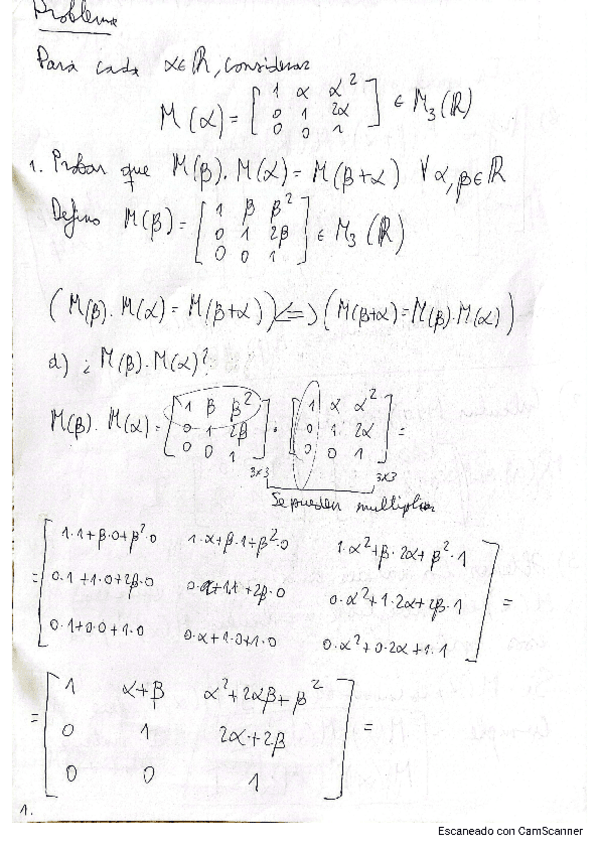 Problema
Para cada α∈ℝ, considerar
M(α) = [ 1 α α²
0 1 2α
0 0 1 ] ∈ M₃(ℝ)
1. Probar que M(β).M(α) = M(β+α) ∀α,β∈ℝ
Defino M(β) = [ 1 β β²
0 1 2β
0 0 1 ] ∈ M₃(ℝ)
(M(β).M(α) = M(β+α)) <=> (M(β+α) = M(β).M(α))
a) ¿M(β).M(α)?
M(β).M(α) = [ 1 β β²
0 1 2β
0 0 1 ]3x3 · [ 1 α α²
0 1 2α
0 0 1 ]3x3 =
Se pueden multiplicar
= [ 1·1+β·0+β²·0 1·α+β·1+β²·0 1·α²+β·2α+β²·1
0·1+1·0+2β·0 0·α+1·1+2β·0 0·α²+1·2α+2β·1
0·1+0·0+1·0 0·α+1·0+1·0 0·α²+0·2α+1·1 ] =
= [ 1 α+β α²+2αβ+β²
0 1 2α+2β
0 0 1 ] =
1.
Escaneado con CamScanner